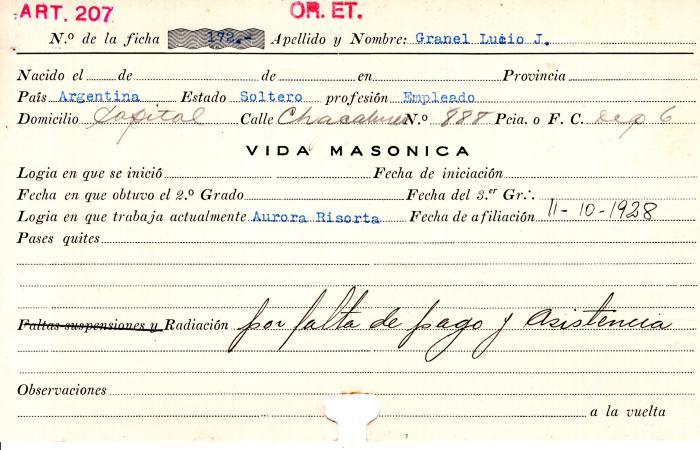 ART. 207 OR. ET.
N.º de la ficha 172.- Apellido y Nombre: Granel Lucio J.
Nacido el de de en Provincia
País Argentina Estado Soltero profesión Empleado
Domicilio Capital Calle Chacabuco N.º 888 Pcia. o F. C. dep 6
VIDA MASONICA
Logia en que se inició Fecha de iniciación
Fecha en que obtuvo el 2.º Grado Fecha del 3.er Gr∴
Logia en que trabaja actualmente Aurora Risorta Fecha de afiliación 11-10-1928
Pases quites
Faltas suspensiones y Radiación por falta de pago y asistencia
Observaciones
a la vuelta